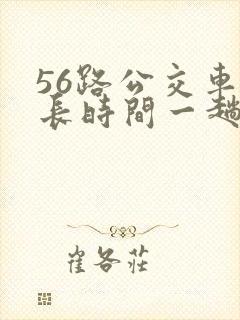 56路公交車
長時間一趟
崔各莊